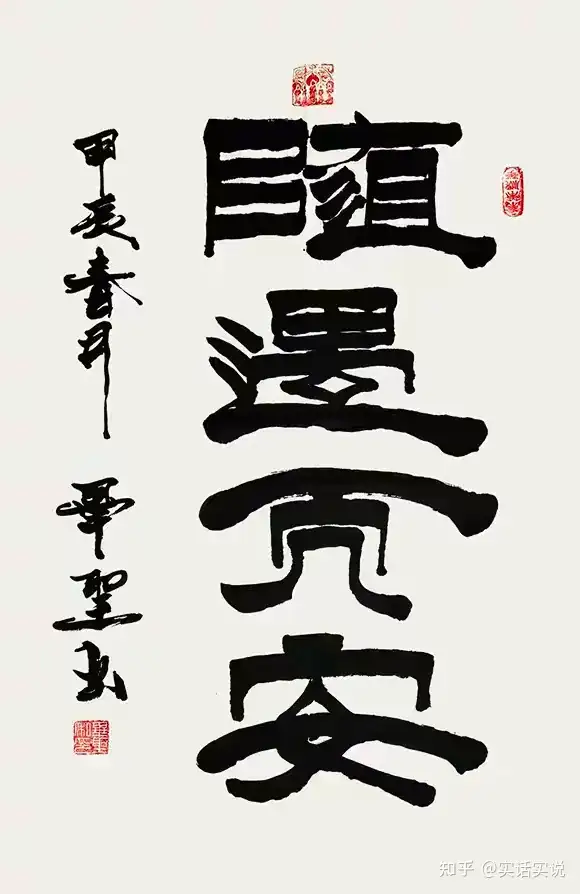 隨遇而安
甲辰春月 覃聖书
知乎 @实话实说